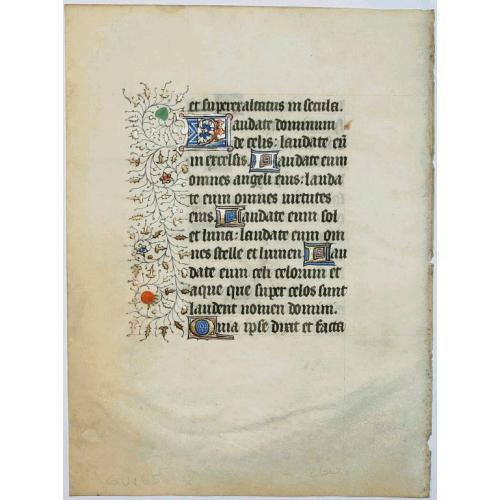 et superexaltatus in secula.
Laudate dominum
de celis: laudate eū
in excelsis. Laudate eum
omnes angeli eius: lauda
te eum omnes uirtutes
eius. Laudate eum sol
et luna: laudate eum om
nes stelle et lumen. Lau
date eum celi celorum et
aque que super celos sunt
laudent nomen domini.
Quia ipse dixit et facta
GV165